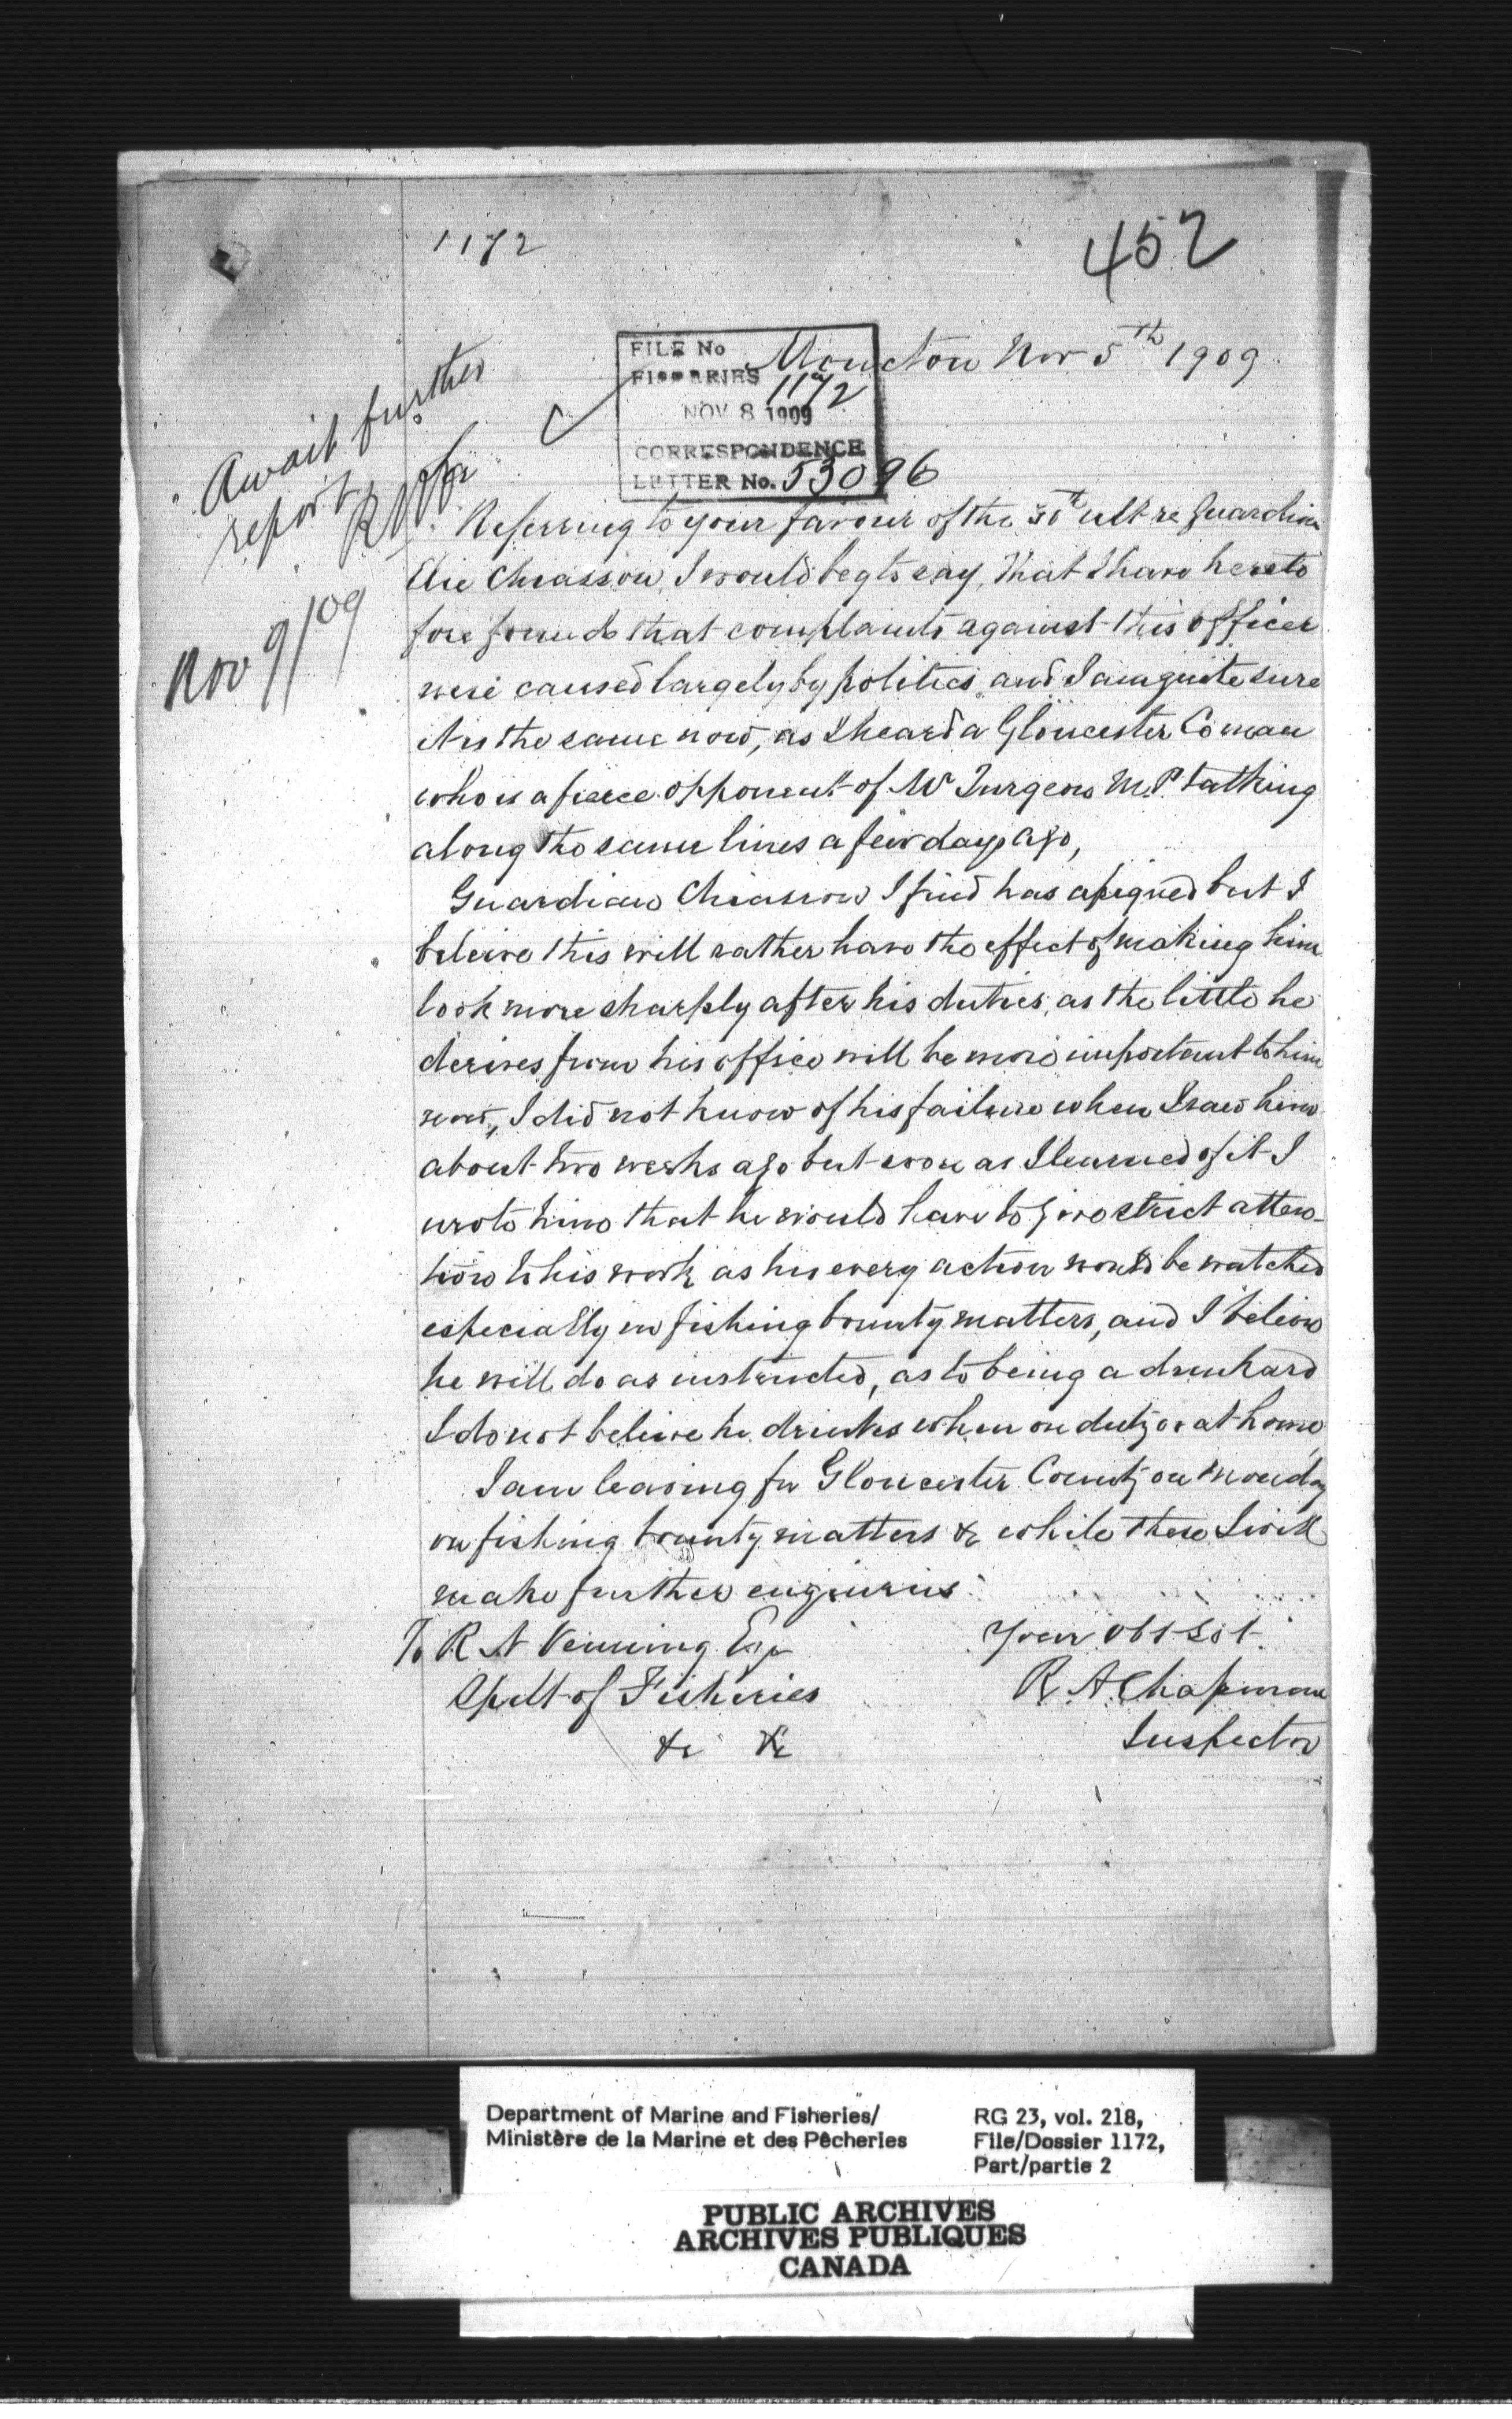 1172
452
Moncton Nov 5th 1909
FILE No
FISHERIES 1172
NOV 8 1909
CORRESPONDENCE
LETTER No. 53096
Await further
report
Nov 9/09
Referring to your favour of the 30th ult re Guardian
Chiasson, I would beg to say, that I have hereto
fore found that complaints against this officer
were caused largely by politics and I am quite sure
it is the same now, as I heard a Gloucester Co man
who is a fierce opponent of Mr Turgeon M.P. talking
along the same lines a few days ago,
Guardian Chiasson I find has assigned but I
beleive this will rather have the effect of making him
look more sharply after his duties, as the little he
derives from his office will be more important to him
now, I did not know of his failure when I saw him
about two weeks ago but soon as I learned of it I
wrote him that he would have to give strict atten-
tion to his work as his every action would be watched
especially in fishing bounty matters, and I believe
he will do as instructed, as to being a drunkard
I do not believe he drinks when on duty or at home
I am leaving for Gloucester County on Monday
on fishing bounty matters & while there I will
make further enquiries
To R N Venning Esq
Your obt Svt
Supt of Fisheries
R A Chapman
&c &c
Inspector
Department of Marine and Fisheries/
Ministère de la Marine et des Pêcheries
RG 23, vol. 218,
File/Dossier 1172,
Part/partie 2
PUBLIC ARCHIVES
ARCHIVES PUBLIQUES
CANADA